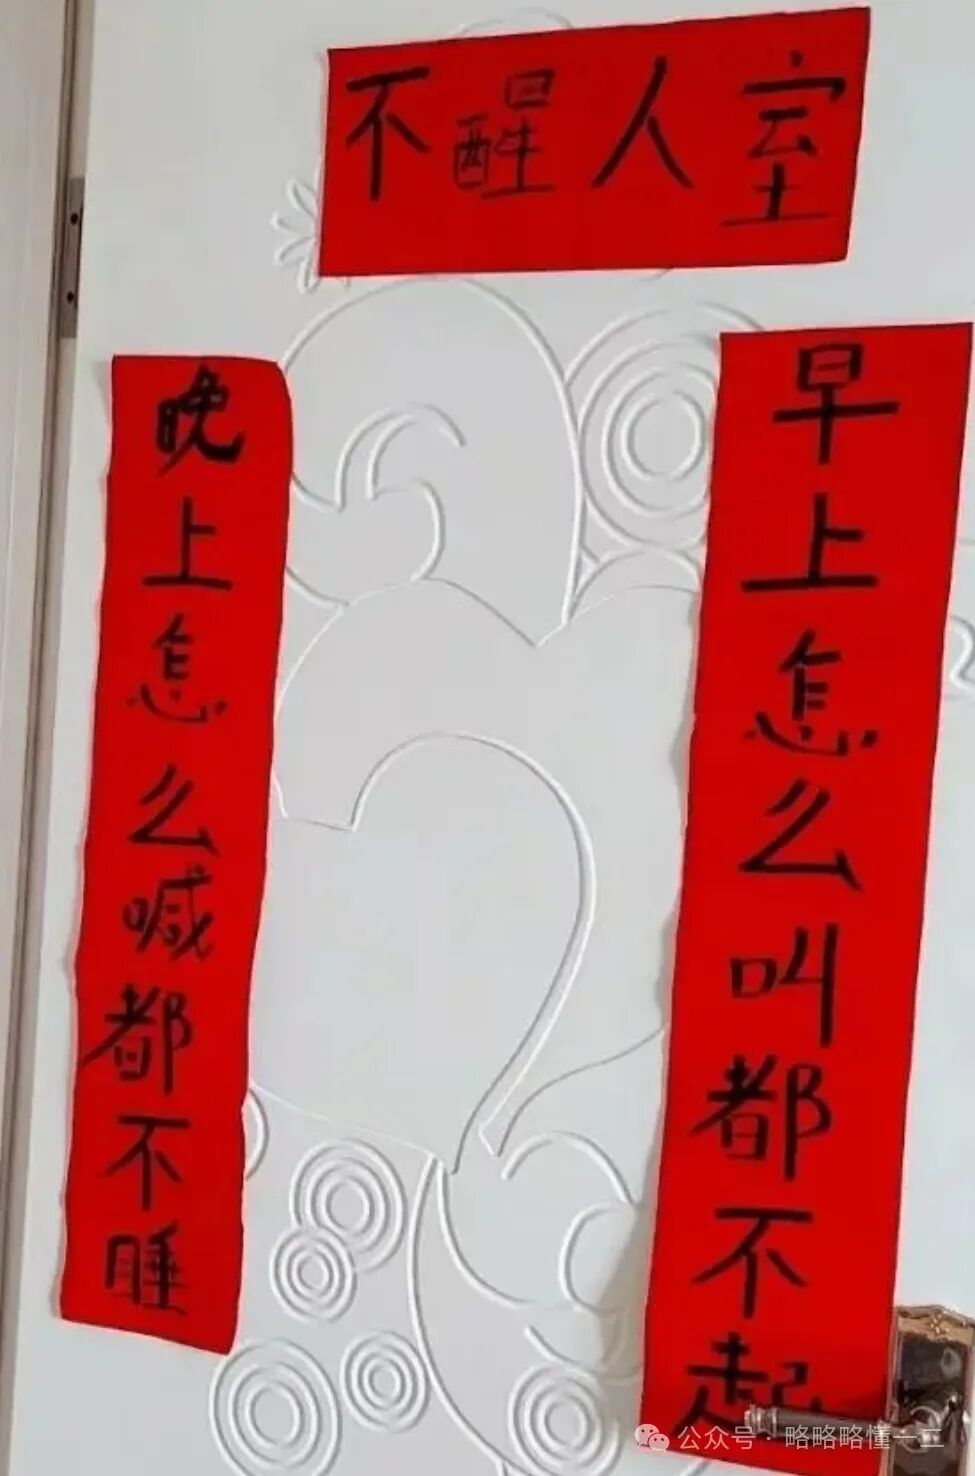 不醒人室
早上怎么叫都不起
晚上怎么喊都不睡
公众号·略略略懂一二